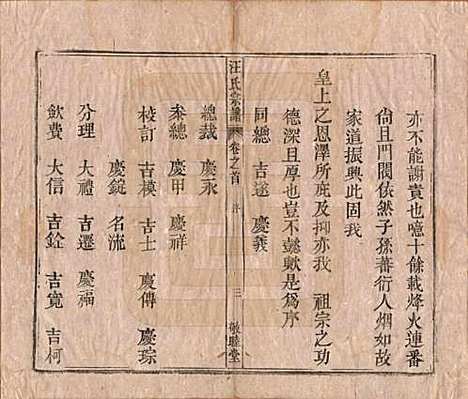 亦不能謝責也噫十餘載烽火連番
尙且門閭依然子孫蕃衍人烟如故
家道振興此固我
皇上之恩澤所庇及抑亦我 祖宗之功
德深且厚也豈不懿歟是爲序
同總 吉遂 慶義
汪氏宗譜 卷之首 序 三 敬睦堂
總裁 慶永
叅總 慶甲 慶祥
校訂 吉模 吉士 慶傳 慶琮
慶錠 名流
分理 大禮 吉遷 慶福
歛費 大信 吉銓 吉寬 吉柯